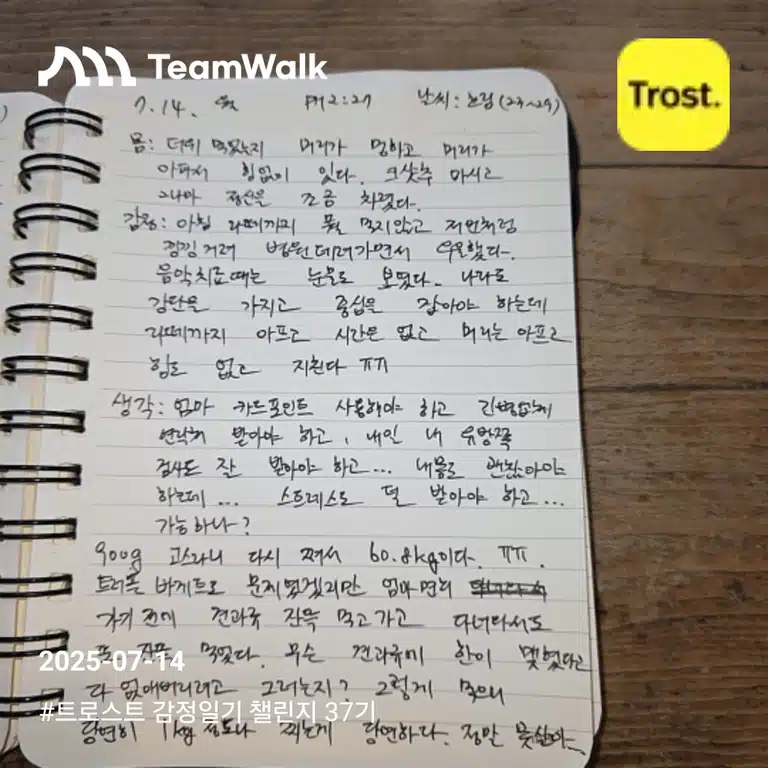 TeamWalk
Trost.
7. 14. PM 2:27 날씨: 흐림(23~29)
몸: 더위 먹었는지 머리가 멍하고 머리가
아파서 힘없이 있다. 마시고
그나마 정신은 조금 차렸다.
감정: 아침 라떼까지 먹지않고 저인처럼
낑낑거려 병원데려가면서 우울했다.
음악치료때는 눈물도 보였다. 나라도
강단을 가지고 중심을 잡아야 하는데
라떼까지 아프고 시간은 없고 머리는 아프고
힘도 없고 지친다 ㅠㅠ
생각: 엄마 카드포인트 사용해야 하고 긴병없게
연락해 받아야 하고, 내일 내 유방쪽
검사도 잘 받아야 하고... 내몸도 괜찮아야
하는데... 스트레스도 덜 받아야 하고...
가능하나?
900g 고스라니 다시 쪄서 60.8kg이다. ㅠㅠ.
트러플 바게트도 문제였겠지만 엄마면회
가기 전에 견과류 잔뜩 먹고가고 다녀와서도
또 잔뜩 먹었다. 무슨 견과류에 한이 맺혔다고
다 없애버리려고 그러는지? 그렇게 먹으니
당연히 1kg 정도나 찌는게 당연하다. 정말 못살아.
2025-07-14
#트로스트 감정일기 챌린지 37기